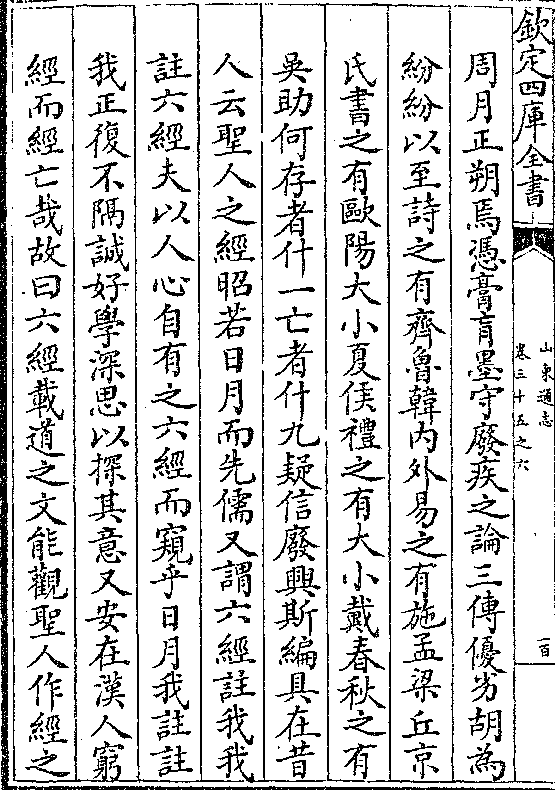 欽定四庫全書
山東通志
卷三十五之六
一百
周月正朔焉憑膏肓墨守廢疾之論三傳優劣胡為
紛紛以至詩之有齊魯韓內外易之有施孟梁丘京
氏書之有歐陽大小夏侯禮之有大小戴春秋之有
吳助何存者什一亡者什九疑信廢興斯編具在昔
人云聖人之經昭若日月而先儒又謂六經註我我
註六經夫以人心自有之六經而窺乎日月我註註
我正復不隔誠好學深思以探其意又安在漢人窮
經而經亡哉故曰六經載道之文能觀聖人作經之